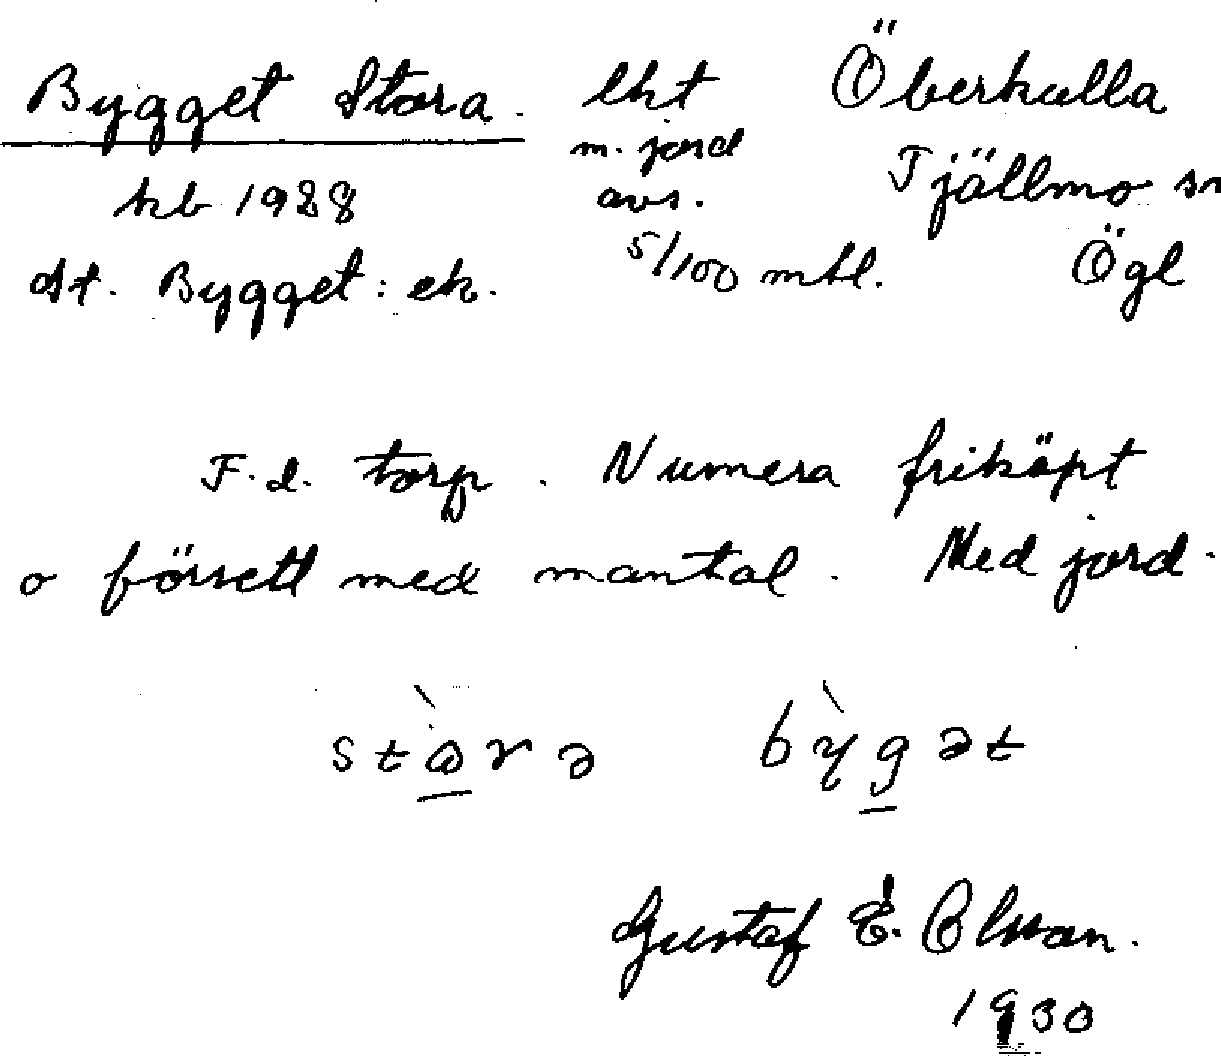 Bygget Stora. lht Öberkulla
m. jord
kb 1928 avs. Tjällmo sn
St. Bygget: ek. 5/100 mtl. Ögl
F.d. torp. Numera friköpt
o försett med mantal. Med jord.
stɷ̀rə bỳgət
Gustaf E. Olsson.
1930